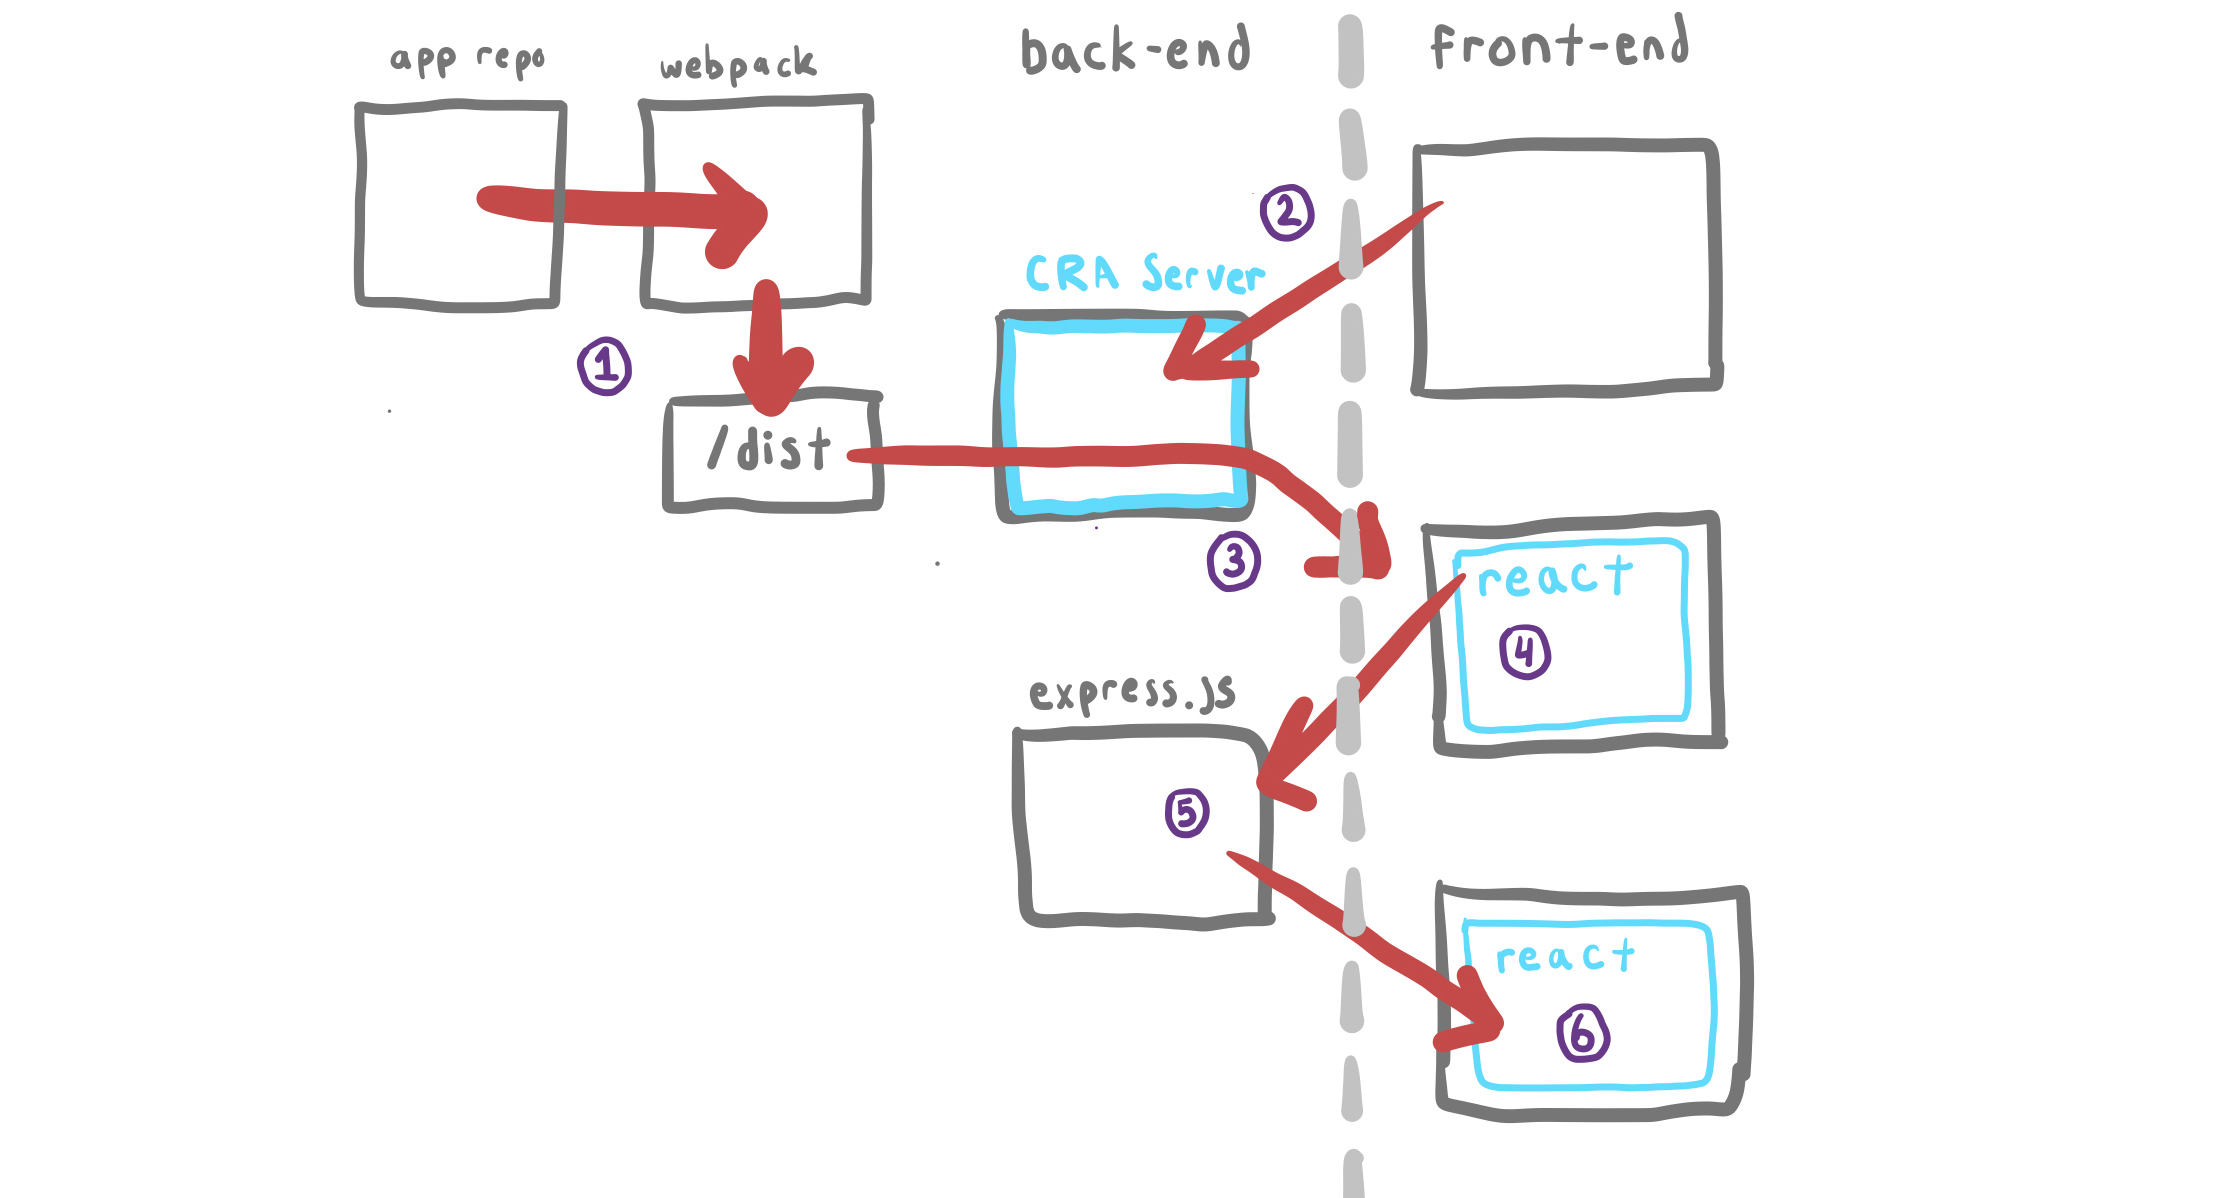 app repo
webpack
back-end
front-end
2
CRA Server
1
/dist
3
react
4
express.js
5
react
6